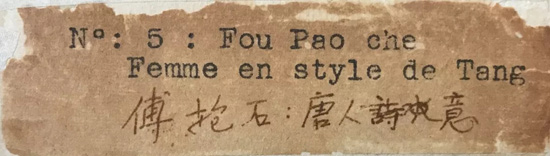 N°: 5 : Fou Pao che
Femme en style de Tang
傅抱石:唐人詩意